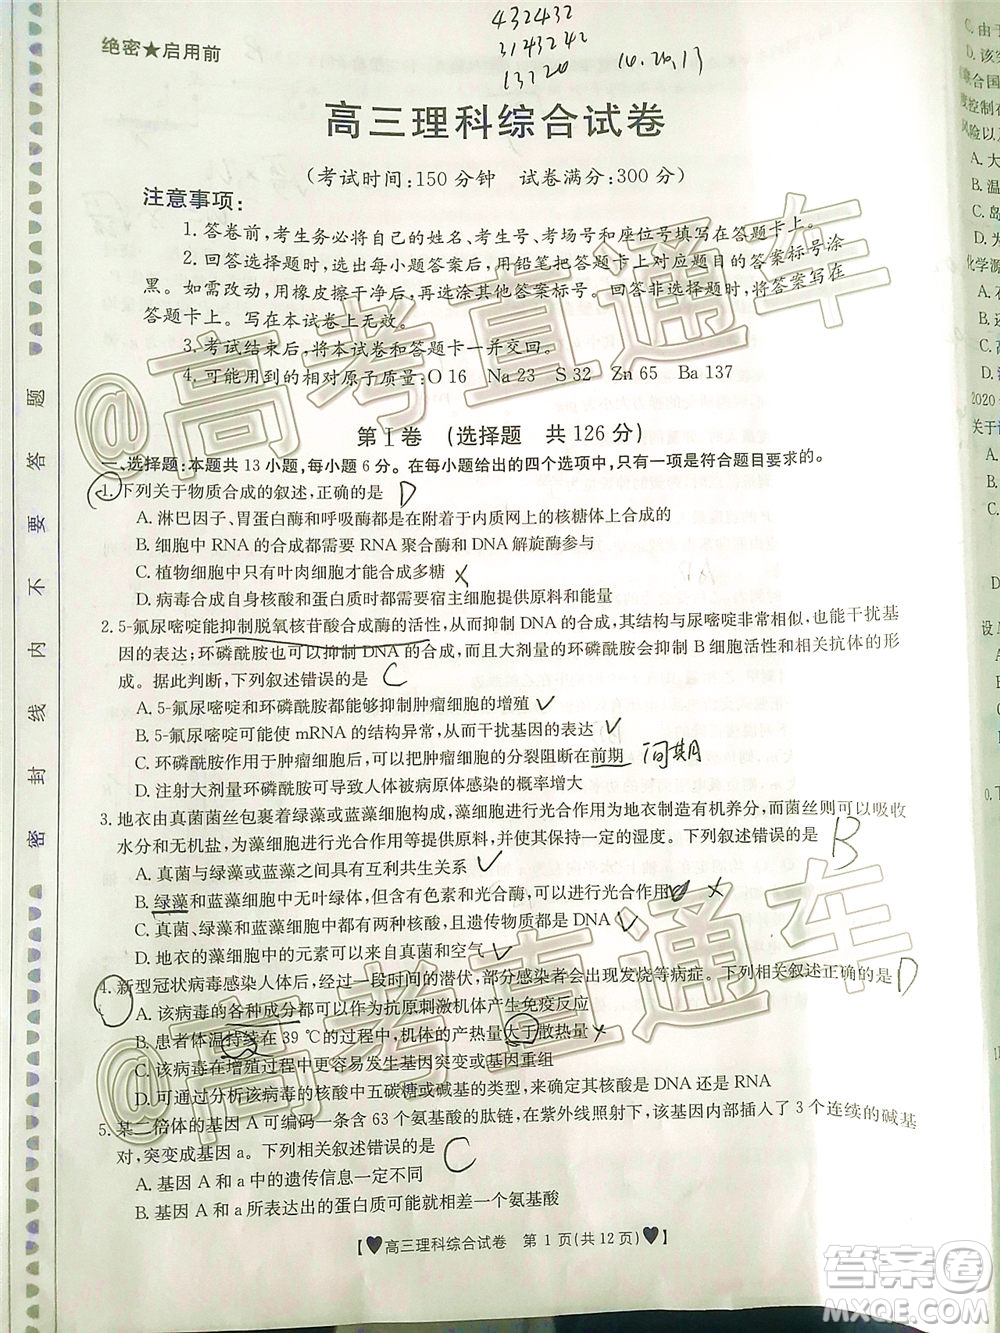 432432
3143242
绝密★启用前
13320 10.20.13
高三理科综合试卷
(考试时间:150分钟 试卷满分:300分)
注意事项:
1. 答卷前,考生务必将自己的姓名、考生号、考场号和座位号填写在答题卡上。
2. 回答选择题时,选出每小题答案后,用铅笔把答题卡对应题目的答案标号涂
黑。如需改动,用橡皮擦干净后,再选涂其他答案标号。回答非选择题时,将答案写在
答题卡上。写在本试卷上无效。
3. 考试结束后,将本试卷和答题卡一并交回。
4. 可能用到的相对原子质量:O 16 Na 23 S 32 Zn 65 Ba 137
第Ⅰ卷 (选择题 共126分)
一、选择题:本题共13小题,每小题6分。在每小题给出的四个选项中,只有一项是符合题目要求的。
1. 下列关于物质合成的叙述,正确的是 D
A. 淋巴因子、胃蛋白酶和呼吸酶都是在附着于内质网上的核糖体上合成的
B. 细胞中RNA的合成都需要RNA聚合酶和DNA解旋酶参与
C. 植物细胞中只有叶肉细胞才能合成多糖 ×
D. 病毒合成自身核酸和蛋白质时都需要宿主细胞提供原料和能量
2. 5-氟尿嘧啶能抑制脱氧核苷酸合成酶的活性,从而抑制DNA的合成,其结构与尿嘧啶非常相似,也能干扰基
因的表达;环磷酰胺也可以抑制DNA的合成,而且大剂量的环磷酰胺会抑制B细胞的活性以及相关抗体的形
成。据此判断,下列叙述错误的是 C
A. 5-氟尿嘧啶和环磷酰胺都能够抑制肿瘤细胞的增殖 √
B. 5-氟尿嘧啶可能使mRNA的结构异常,从而干扰基因的表达 √
C. 环磷酰胺作用于肿瘤细胞,可使肿瘤细胞的分裂阻断在前期 间期
D. 注射大剂量环磷酰胺可导致人体被病原体感染的概率增大
3. 地衣由真菌菌丝包裹着绿藻或蓝藻细胞构成,藻细胞进行光合作用为地衣制造有机养分,而菌丝则可以吸收
水分和无机盐,为藻细胞的光合作用等提供原料,并使藻细胞保持一定的湿度。下列叙述错误的是 B
A. 真菌与绿藻或蓝藻之间具有互利共生关系 √
B. 绿藻和蓝藻细胞中无叶绿体,但含有色素和光合酶,可以进行光合作用 ×
C. 真菌、绿藻和蓝藻细胞中都有两种核酸,且遗传物质都是DNA √
D. 地衣的藻细胞中的元素可以来自真菌和空气 √
4. 新型冠状病毒感染人体后,经过一段时间的潜伏,部分感染者会出现发烧等病症。下列相关叙述正确的是 D
A. 该病毒的各种成分都可以作为抗原刺激机体产生免疫反应
B. 患者体温持续在39 ℃的过程中,机体的产热量大于散热量 ×
C. 该病毒在增殖过程中更容易发生基因突变或基因重组
D. 可通过分析该病毒的核酸中五碳糖或碱基的类型,来确定其核酸是DNA还是RNA
5. 某二倍体的基因A可编码一条含63个氨基酸的肽链,在紫外线照射下,该基因内部插入了3个连续的碱基
对,突变成基因a。下列相关叙述错误的是 C
A. 基因A和a中的遗传信息一定不同
B. 基因A和a所表达出的蛋白质可能就相差一个氨基酸
【♥高三理科综合试卷 第1页(共12页)♥】
密 封 线 内 不 要 答 题
@高考直通车
@高考直通车
答案卷
MXQE.COM